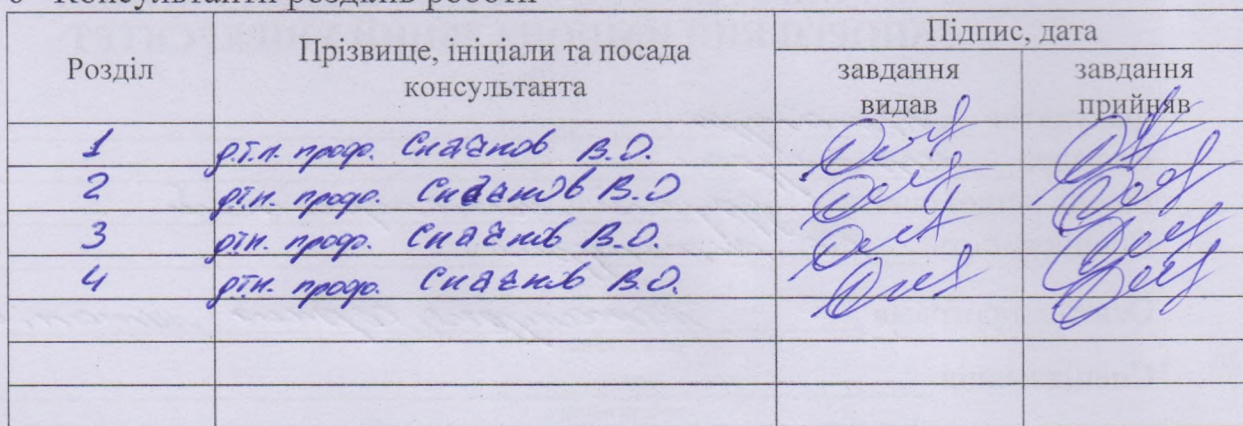 6 Консультанти розділів роботи
Розділ
Прізвище, ініціали та посада
консультанта
Підпис, дата
завдання
видав
завдання
прийняв
1 д.т.н. проф. Скачков В.О.
2 д.т.н. проф. Скачков В.О
3 д.т.н. проф. Скачков В.О.
4 д.т.н. проф. Скачков В.О.